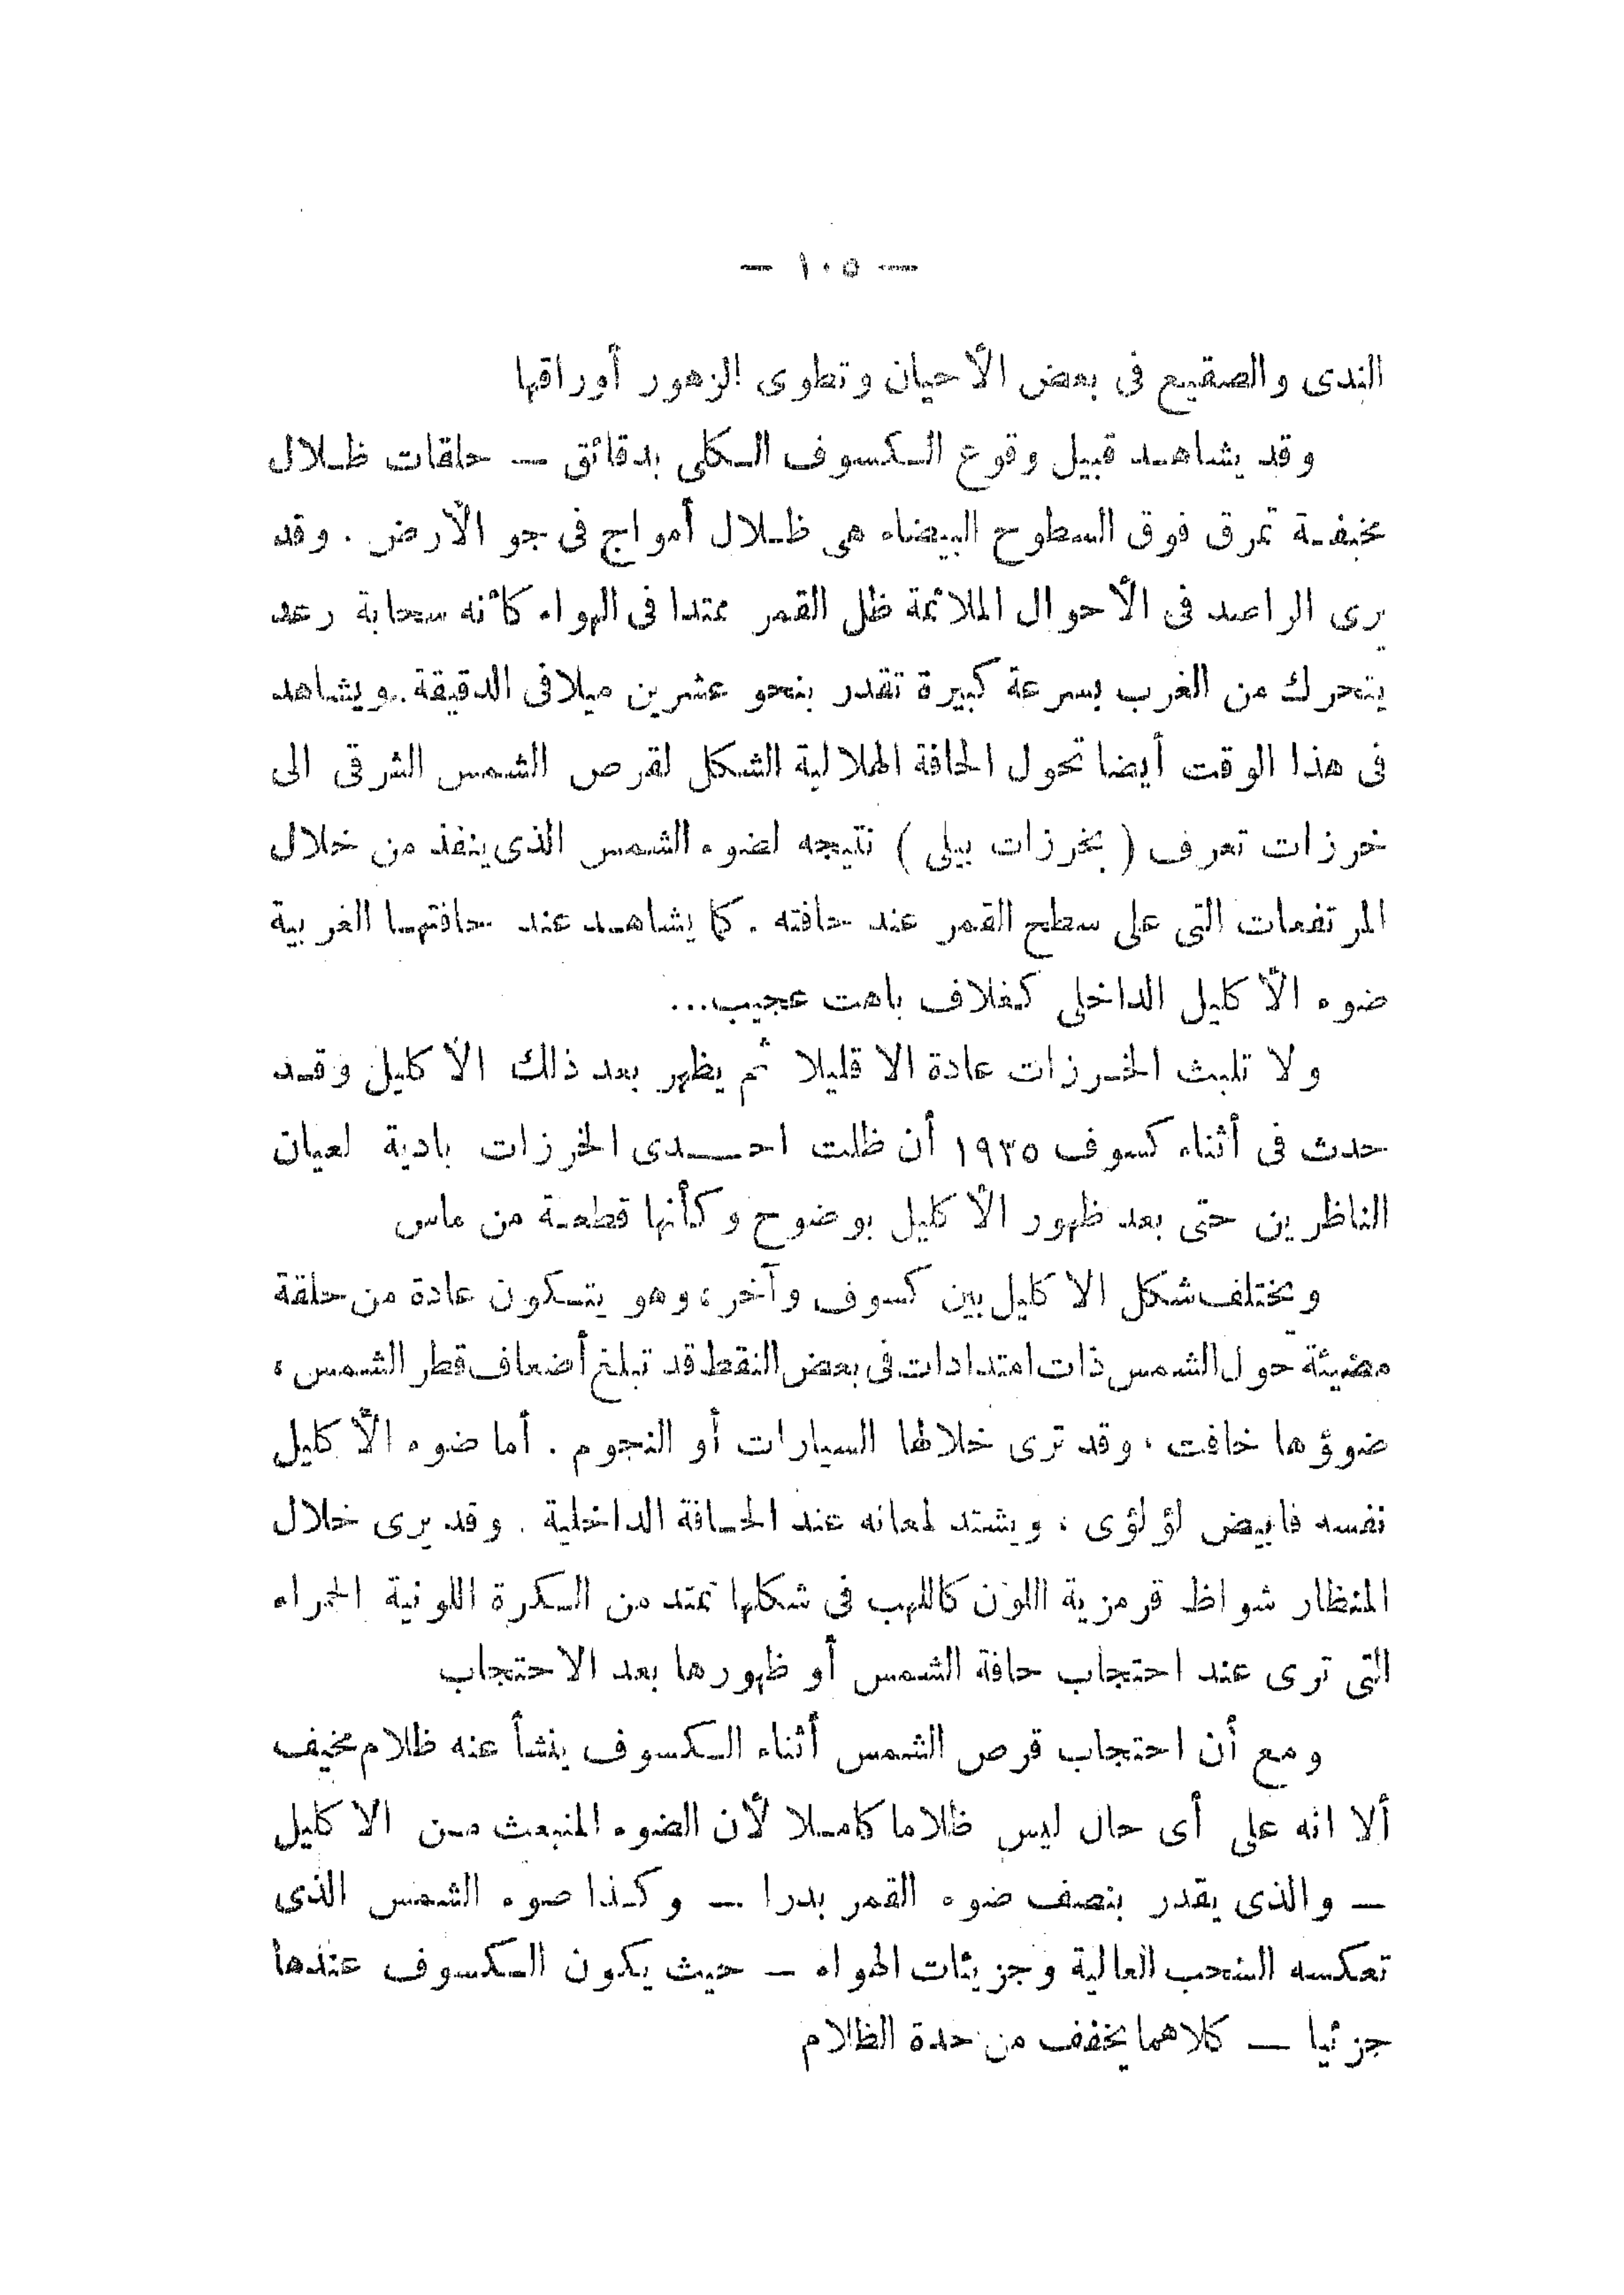 — ١٠٥ —
الندى والصقيع فى بعض الأحيان وتطوى الزهور أوراقها
وقد يشاهد قبيل وقوع الكسوف الكلى بدقائق — حلقات ظلال
مخيفة تمرق فوق السطوح البيضاء هى ظلال أمواج فى جو الأرض . وقد
يرى الراصد فى الأحوال الملائمة ظل القمر ممتدا فى الهواء كأنه سحابة رعد
يتحرك من الغرب بسرعة كبيرة تقدر بنحو عشرين ميلا فى الدقيقة . ويشاهد
فى هذا الوقت أيضا تحول الحافة الهلالية الشكل لقرص الشمس الشرقى الى
خرزات تعرف ( بخرزات بيلى ) نتيجه لضوء الشمس الذى ينفذ من خلال
المرتفعات التى على سطح القمر عند حافته . كما يشاهد عند حافتها الغربية
ضوء الأكليل الداخلى كغلاف باهت عجيب...
ولا تلبث الخرزات عادة الا قليلا ثم يظهر بعد ذلك الأكليل وقد
حدث فى أثناء كسوف ١٩٣٥ أن ظلت احدى الخرزات بادية لعيان
الناظرين حتى بعد ظهور الأكليل بوضوح وكأنها قطعة من ماس
ويختلف شكل الاكليل بين كسوف وآخر ، وهو يتكون عادة من حلقة
مضيئة حول الشمس ذات امتدادات فى بعض النقط قد تبلغ أضعاف قطر الشمس ،
ضوؤها خافت ، وقد ترى خلالها السيارات أو النجوم . أما ضوء الأكليل
نفسه فابيض لؤلؤى ، ويشتد لمعانه عند الحافة الداخلية . وقد يرى خلال
المنظار شواظ قرمزية اللون كاللهب فى شكلها تمتد من الكرة اللونية الحمراء
التى ترى عند احتجاب حافة الشمس أو ظهورها بعد الاحتجاب
ومع أن احتجاب قرص الشمس أثناء الكسوف ينشأ عنه ظلام مخيف
ألا انه على أى حال ليس ظلاما كاملا لأن الضوء المنبعث من الاكليل
— والذى يقدر بنصف ضوء القمر بدرا — وكذا ضوء الشمس الذى
تعكسه السحب العالية وجزيئات الهواء — حيث يكون الكسوف عندها
جزئيا — كلاهما يخفف من حدة الظلام